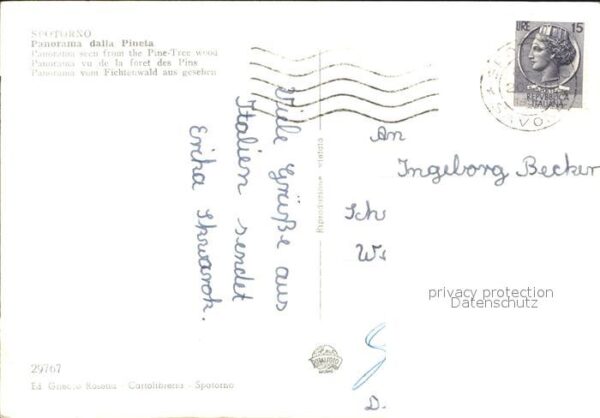 SPOTORNO
Panorama dalla Pineta
Panorama seen from the Pine-Tree wood
Panorama vu de la foret des Pins
Panorama vom Fichtenwald aus gesehen
LIRE 15
REPVBBLICA
ITALIANA
Viele Grüße aus
Italien sendet
Erika
Riproduzione vietata
An
Ingeborg Becker
Sch
privacy protection
Datenschutz
D.
29767
Ed. Rosetta - Cartolibreria - Spotorno